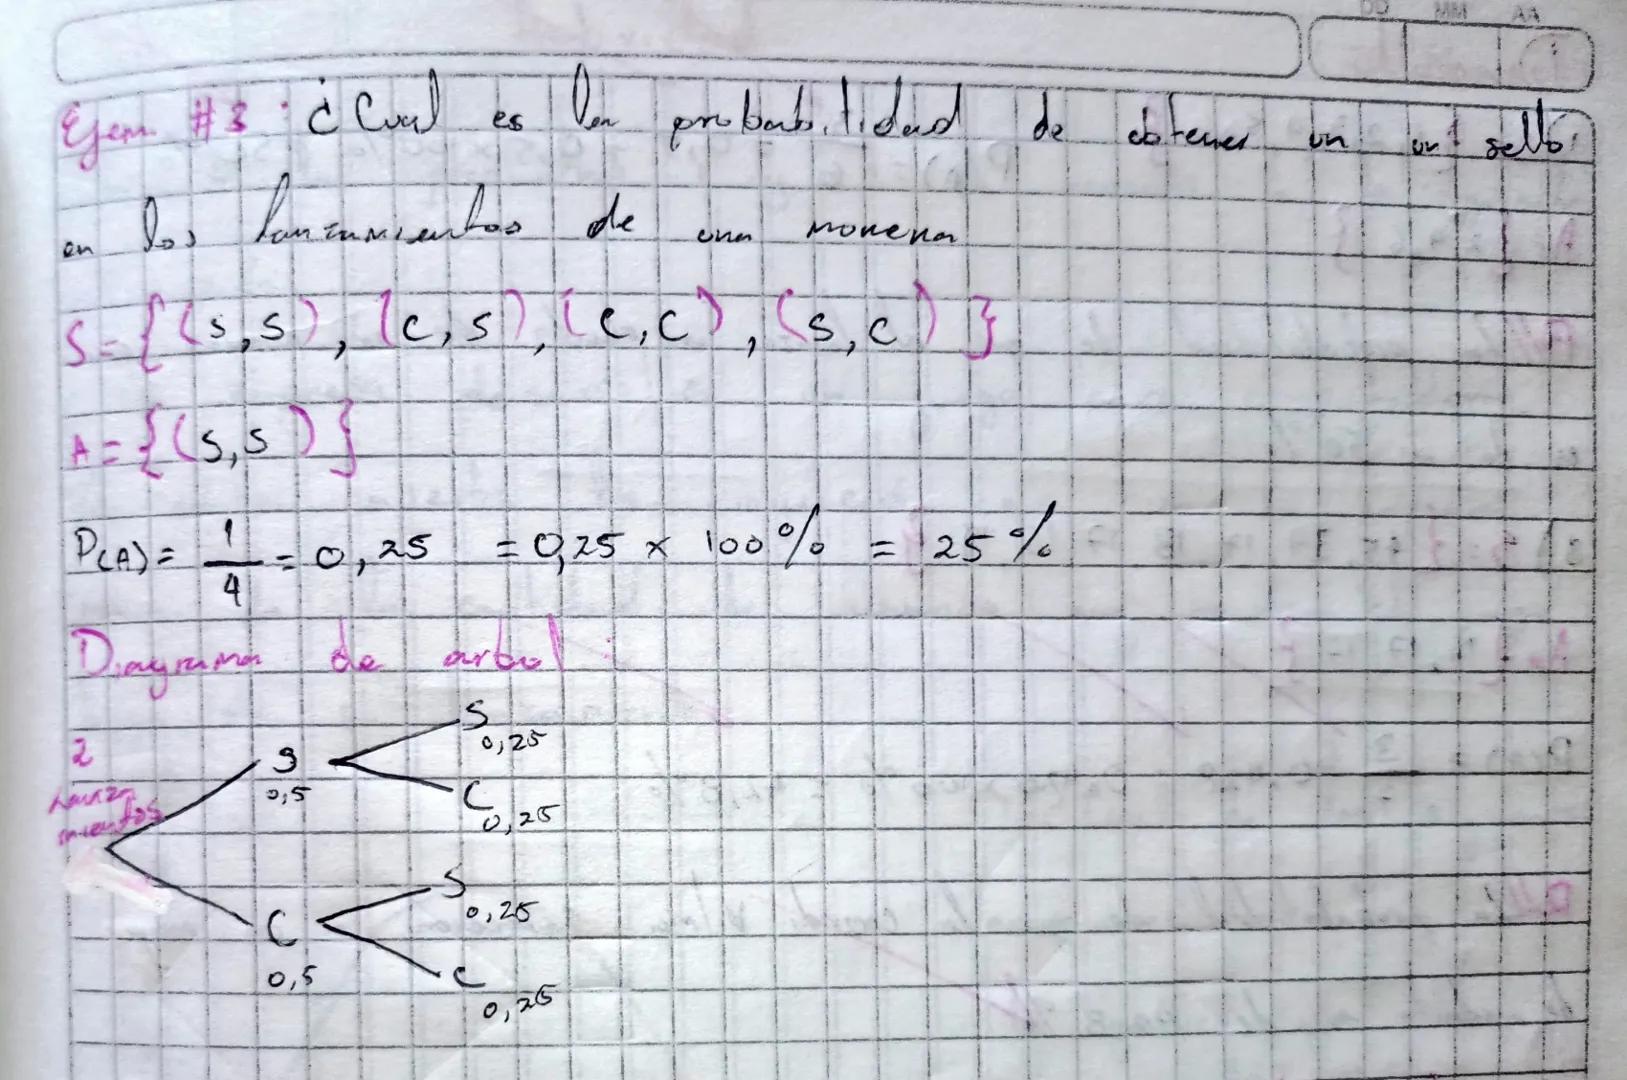 DD MM AA
Ejem #3: ¿Cual es la probabilidad de obtener un un sello
en los lanzamientos de una monena
S={(s,s), (c,s), (c,c), (s,c)}
A={(s,s)}
P(A)= 1/4 = 0,25 = 0,25 x 100% = 25%
Diagrama de arbol:
2
Lanza
mientos
S 0,5
S 0,25
C 0,25
C 0,5
S 0,25
C 0,25